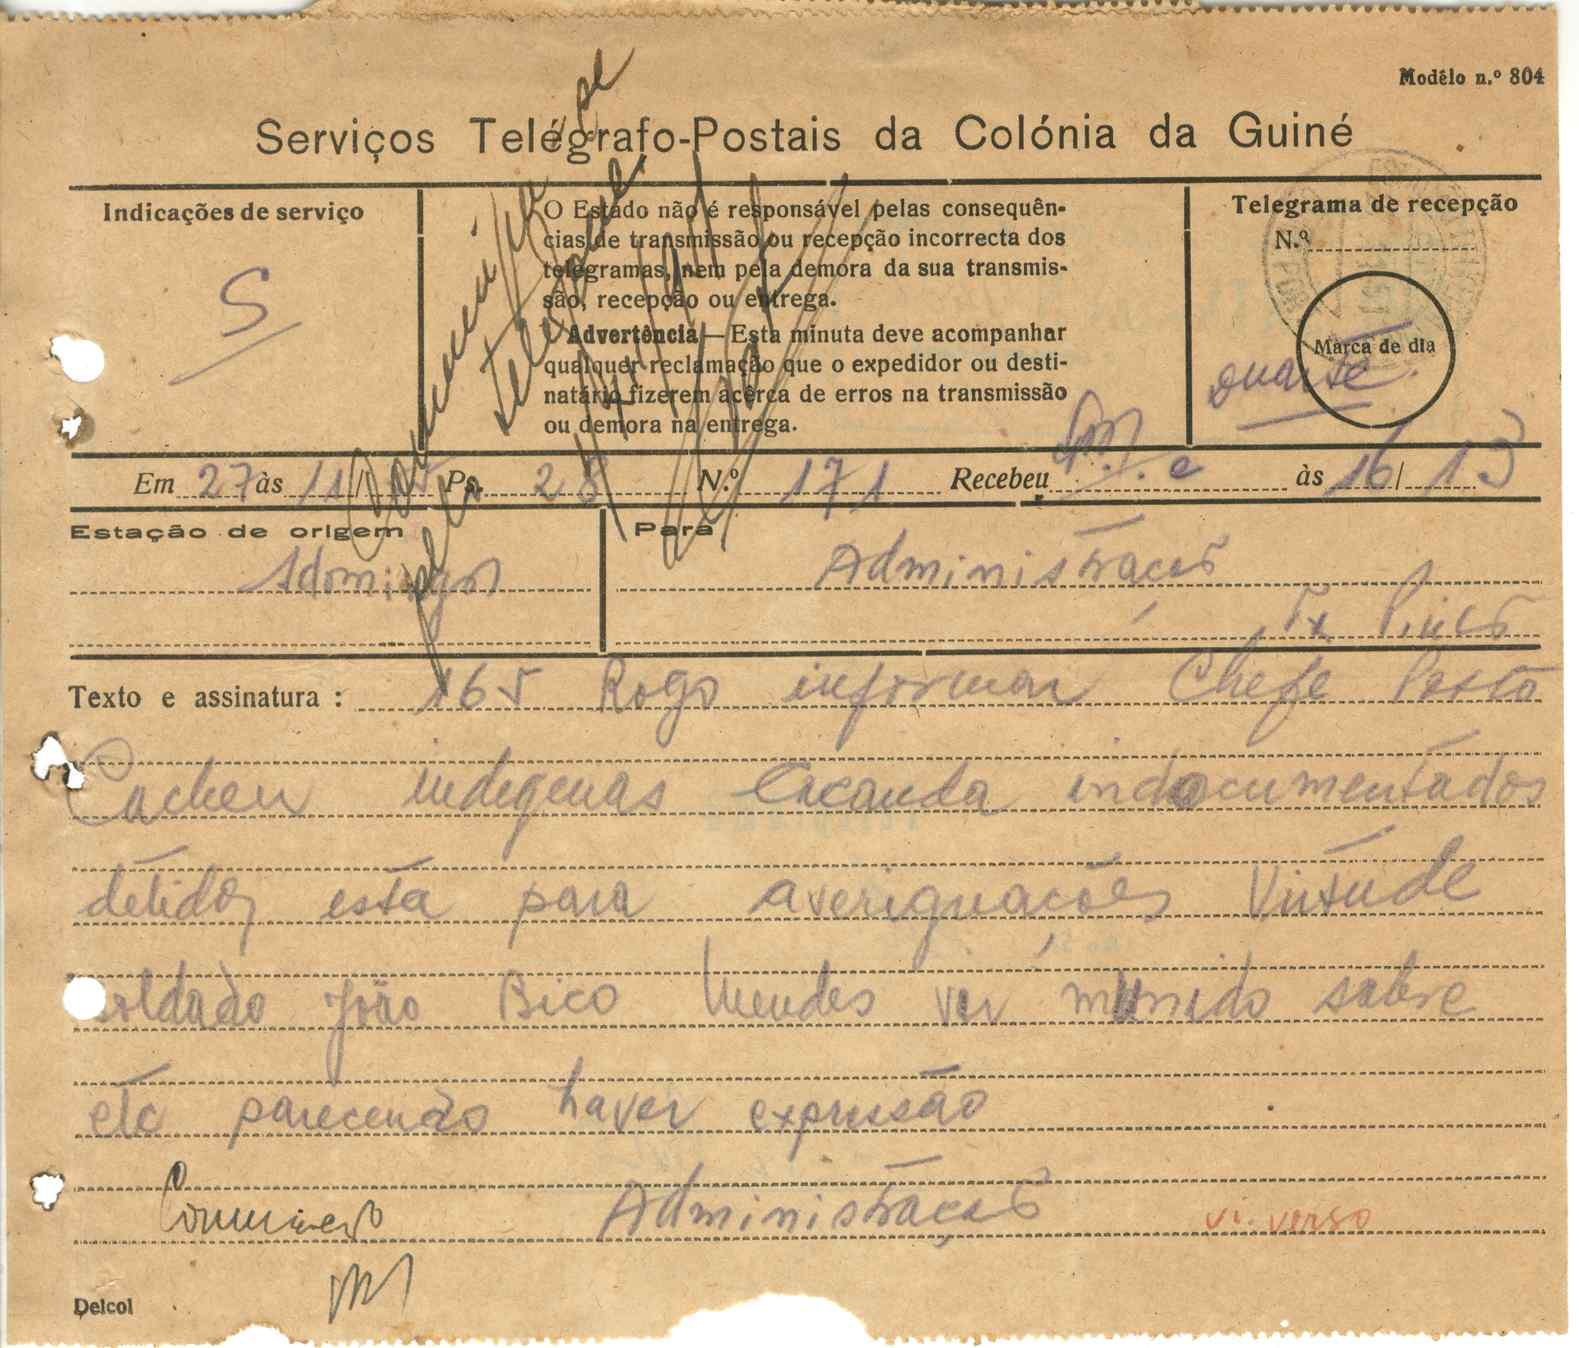 Modêlo n.º 804
Serviços Telégrafo-Postais da Colónia da Guiné
Indicações de serviço
S
O Estado não é responsável pelas consequên-
cias de transmissão ou recepção incorrecta dos
telegramas, nem pela demora da sua transmis-
são, recepção ou entrega.
Advertência — Esta minuta deve acompanhar
qualquer reclamação que o expedidor ou desti-
natário fizerem acêrca de erros na transmissão
ou demora na entrega.
Telegrama de recepção
N.º
Marca de dia
Em 27 às 11/ Ps. 28 N.º 171 Recebeu às 16/13
Estação de origem
Para
Sdomingos
Administração
Tx Pines
Texto e assinatura : 165 Rogo informar Chefe Posto
Cacheu indegenas indocumentados
detidos esta para averiguações Virtude
soldado João Bico Mendes vir munido sobre
etc parecendo haver expressão
Administração
vi. verso
Delcol